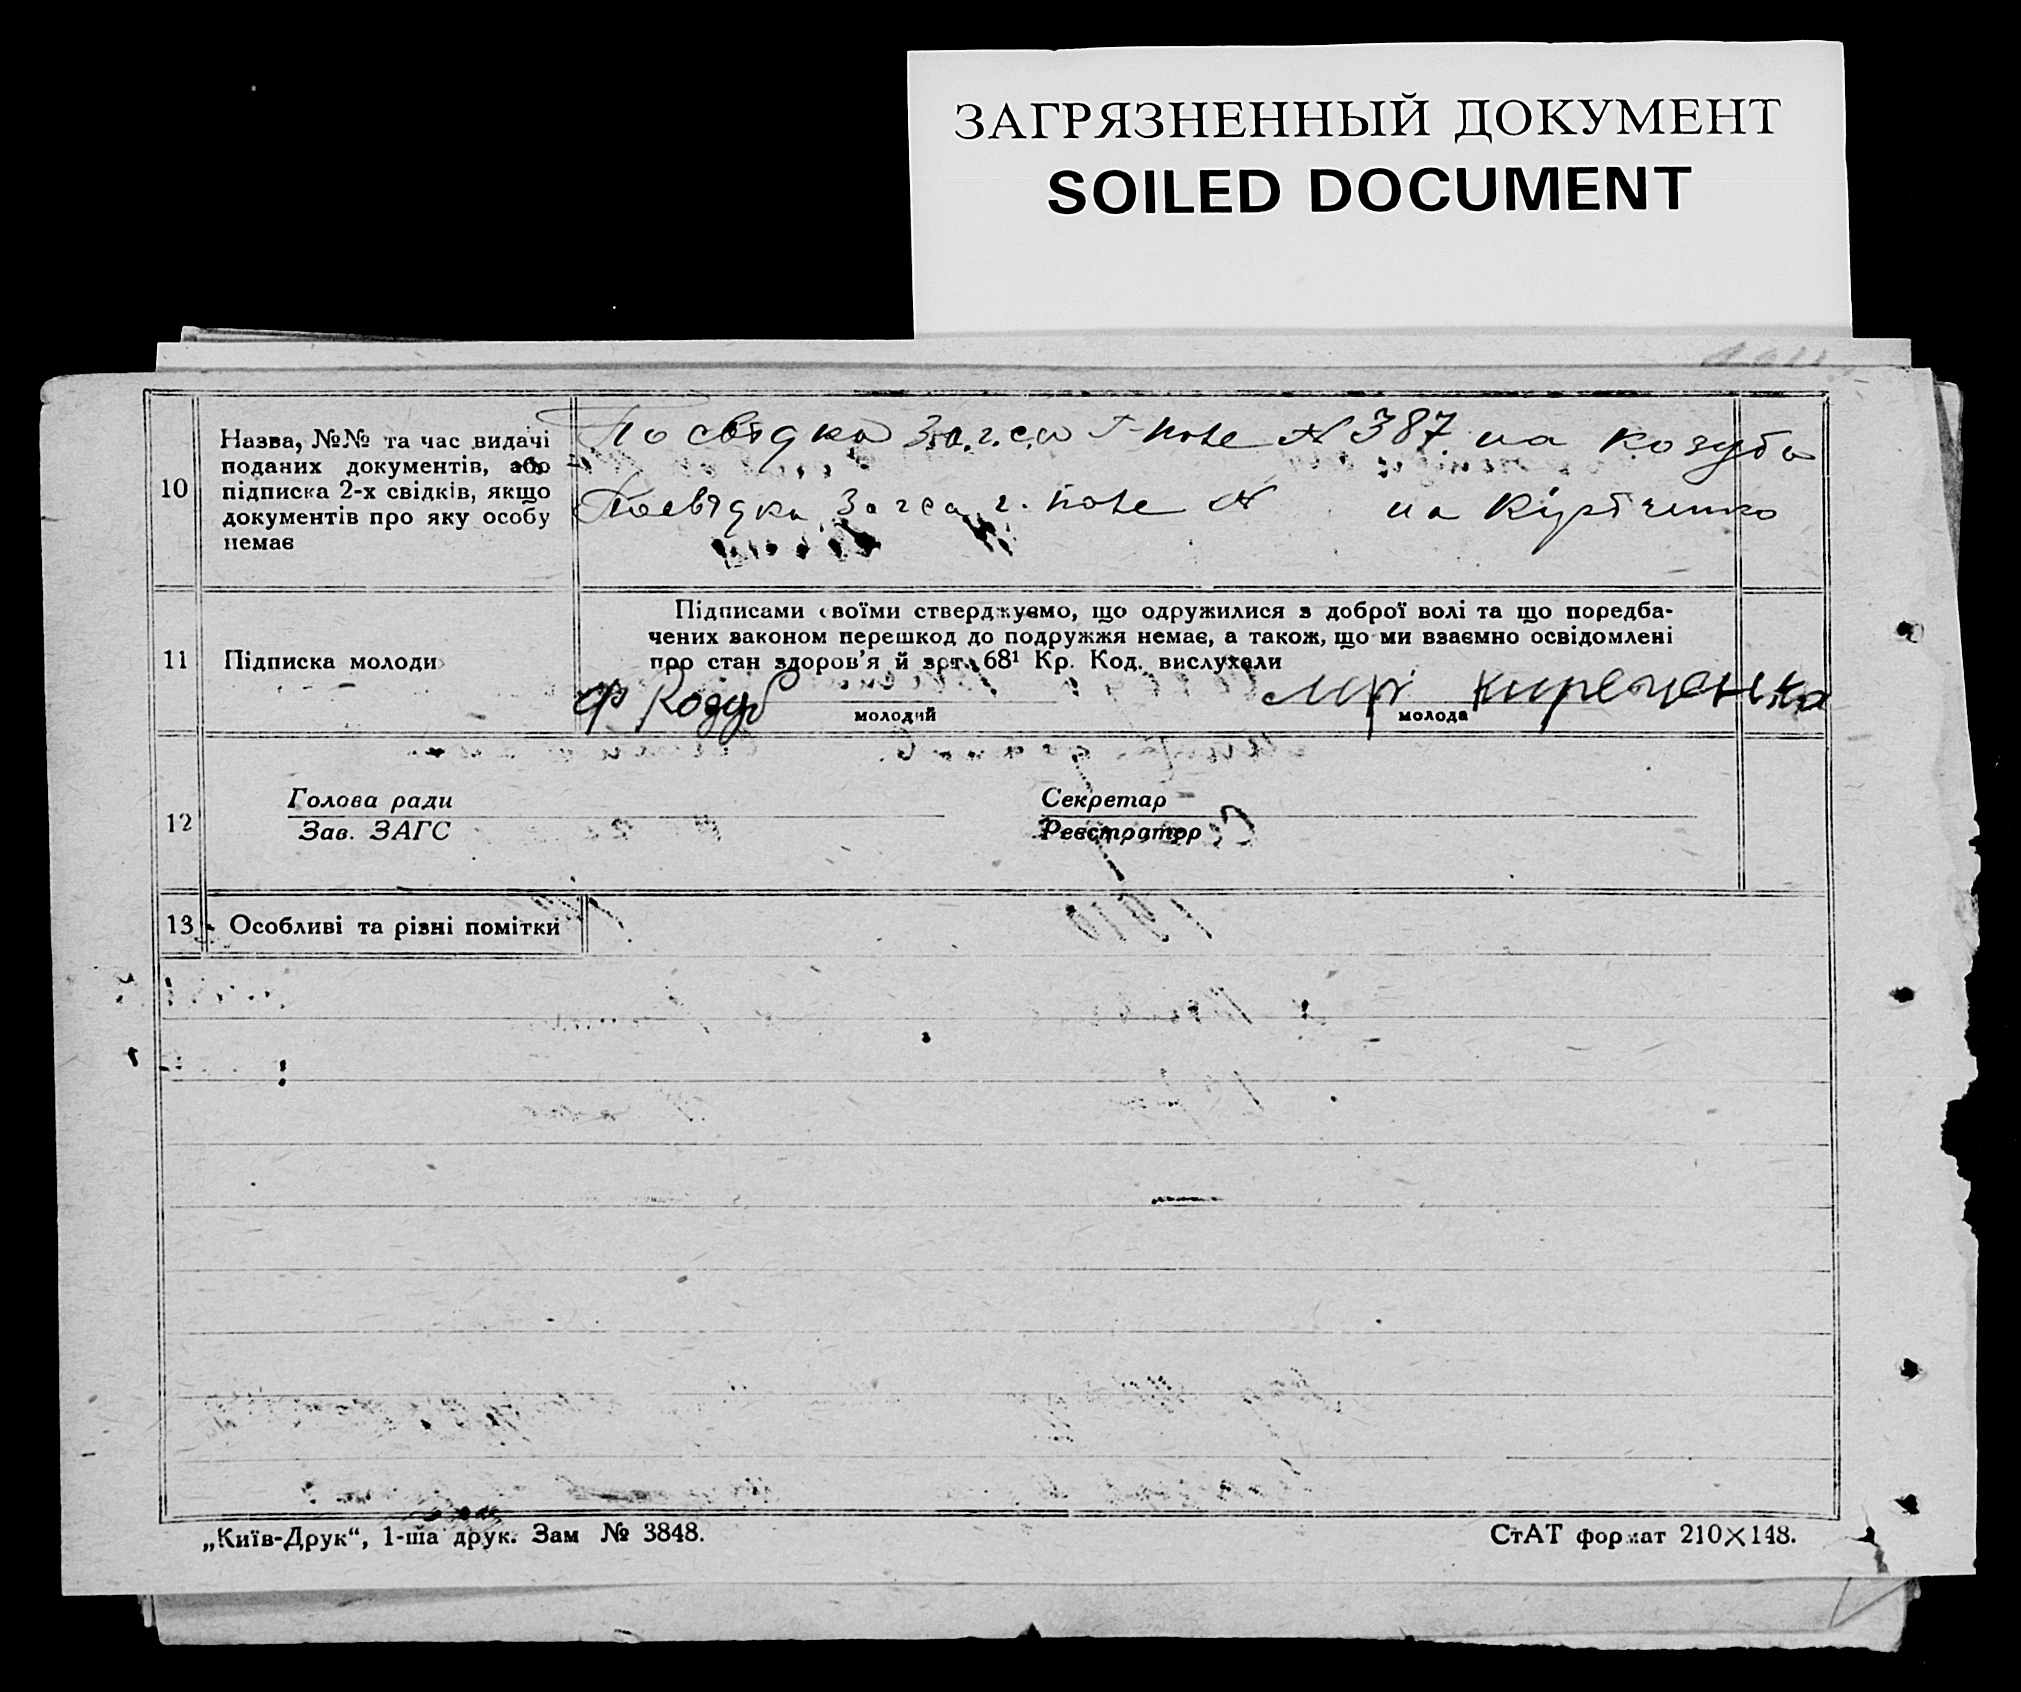 ЗАГРЯЗНЕННЫЙ ДОКУМЕНТ
SOILED DOCUMENT
10
Назва, №№ та час видачі
поданих документів, або
підписка 2-х свідків, якщо
документів про яку особу
немає
Посвідка Загса № 387 на Козуба
Посвідка Загса № на
11
Підписка молоди
Підписами своїми стверджуємо, що одружилися з доброї волі та що поредба-
чених законом перешкод до подружжя немає, а також, що ми взаємно освідомлені
про стан здоров'я й арт. 68¹ Кр. Код. вислухали
Ф Козуб
молодий
молода
12
Голова ради
Зав. ЗАГС
Секретар
Реєстратор
13
Особливі та різні помітки
„Київ-Друк“, 1-ша друк. Зам № 3848.
СтАТ формат 210×148.